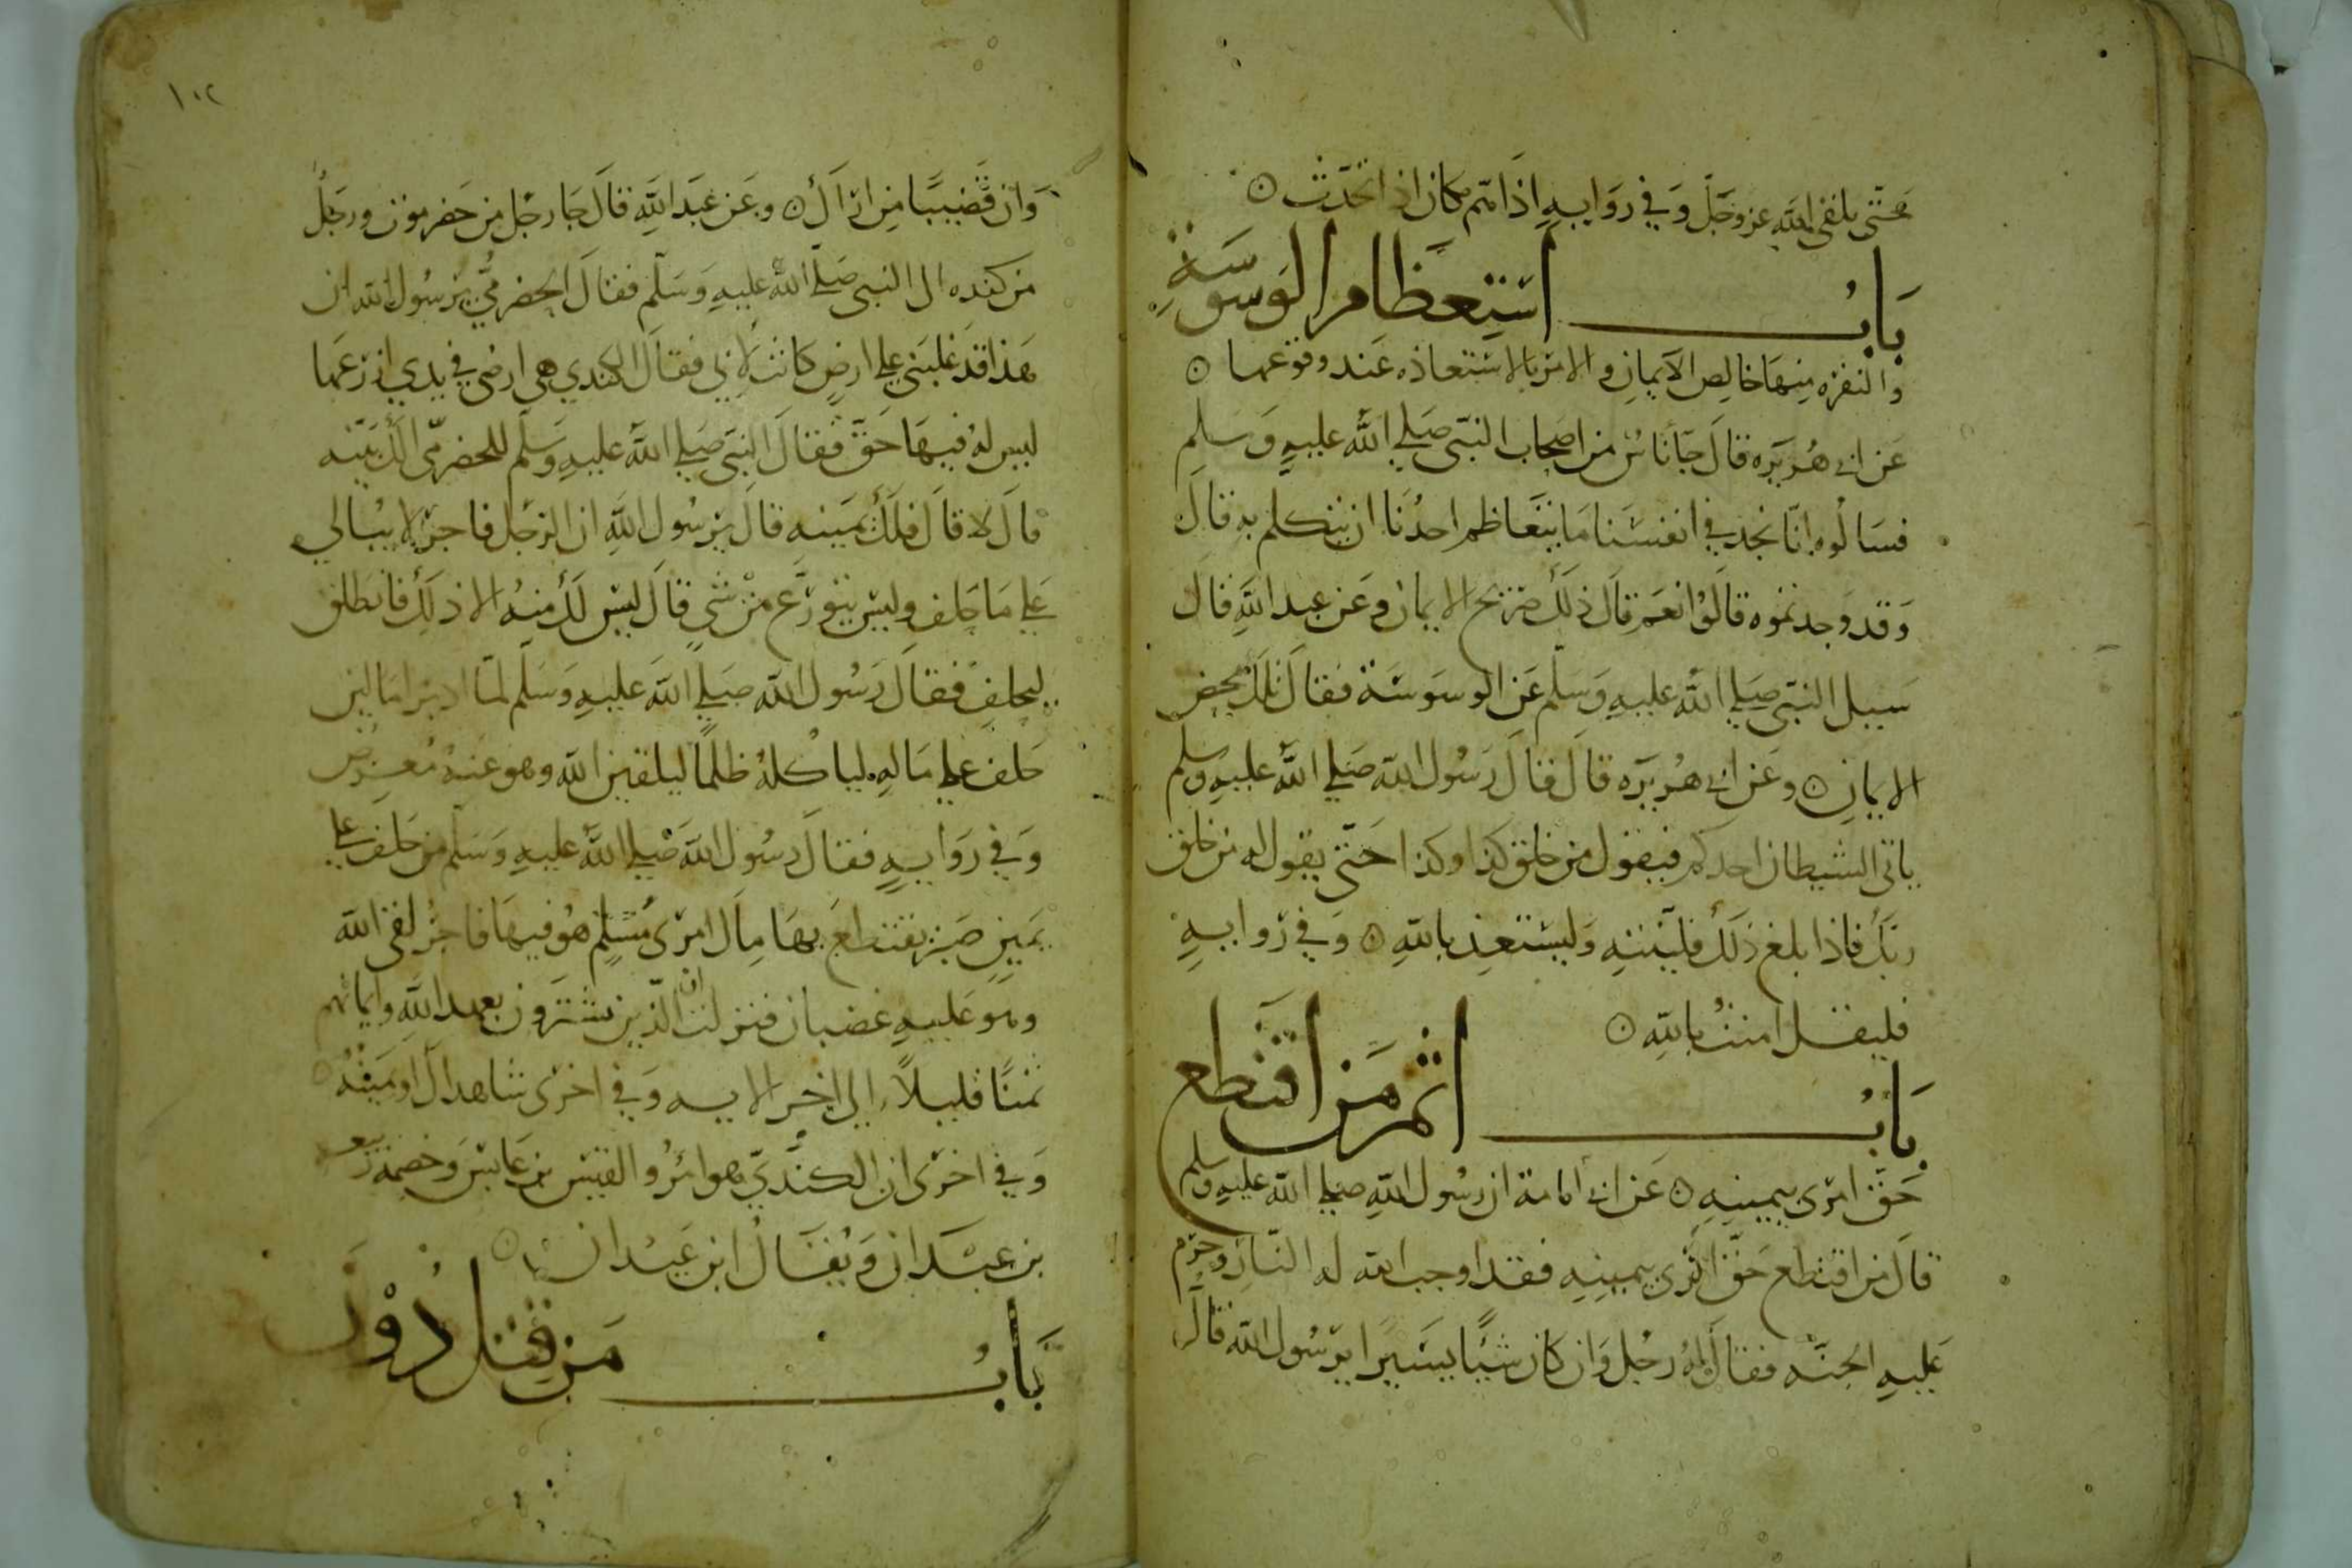 حتى يلقى الله عز وجل وفي رواية اذا هم مكان اذا تحدث ۞
باب استعظام الوسوسة
والنفره منها خالص الايمان والامر بالاستعاذه عند وقوعها ۞
عن ابي هريره قال جا ناس من اصحاب النبي صلى الله عليه وسلم
فسالوه انا نجد في انفسنا ما يتعاظم احدنا ان يتكلم به قال
وقد وجدتموه قالوا نعم قال ذلك صريح الايمان وعن عبد الله قال
سيل النبي صلى الله عليه وسلم عن الوسوسة فقال تلك محض
الايمان ۞ وعن ابي هريره قال قال رسول الله صلى الله عليه وسلم
ياتي الشيطان احدكم فيقول من خلق كذا وكذا حتى يقول له من خلق
ربك فاذا بلغ ذلك فلينته وليستعذ بالله ۞ وفي روايه
فليقل امنت بالله ۞
باب اثم من اقتطع
حق امرى بيمينه ۞ عن ابي امامة ان رسول الله صلى الله عليه وسلم
قال من اقتطع حق امرى بيمينه فقد اوجب الله له النار وحرم
عليه الجنه فقال له رجل وان كان شيًا يسيرا يرسول الله قال
١٠٢
وان قضيبًا من اراك ۞ وعن عبد الله قال جا رجل من حضرموت ورجل
من كنده الى النبي صلى الله عليه وسلم فقال الحضرمي يرسول الله ان
هذا قد غلبني على ارض كانت لابي فقال الكندي هي ارضي في يدي ازرعها
ليس له فيها حق فقال النبي صلى الله عليه وسلم للحضرمي الك بينه
قال لا قال فلك يمينه قال يرسول الله ان الرجل فاجر لا يبالي
على ما حلف وليس يتورع من شي قال ليس لك منه الا ذلك فانطلق
ليحلف فقال رسول الله صلى الله عليه وسلم لما ادبر اما لين
حلف على ماله لياكله ظلمًا ليلقين الله وهو عنه معرض
وفي روايه فقال رسول الله صلى الله عليه وسلم من حلف على
يمين صبر يقتطع بها مال امرى مسلم هو فيها فاجر لقي الله
وهو عليه غضبان فنزلت ان الذين يشترون بعهد الله وايمانهم
ثمنًا قليلاً الى اخر الايه وفي اخرى شاهداك او يمينه ۞
وفي اخرى ان الكندي هو امرؤ القيس بن عابس وخصمه ربيعه
بن عبدان ويقال ابن عيدان ۞
باب من قتل دون